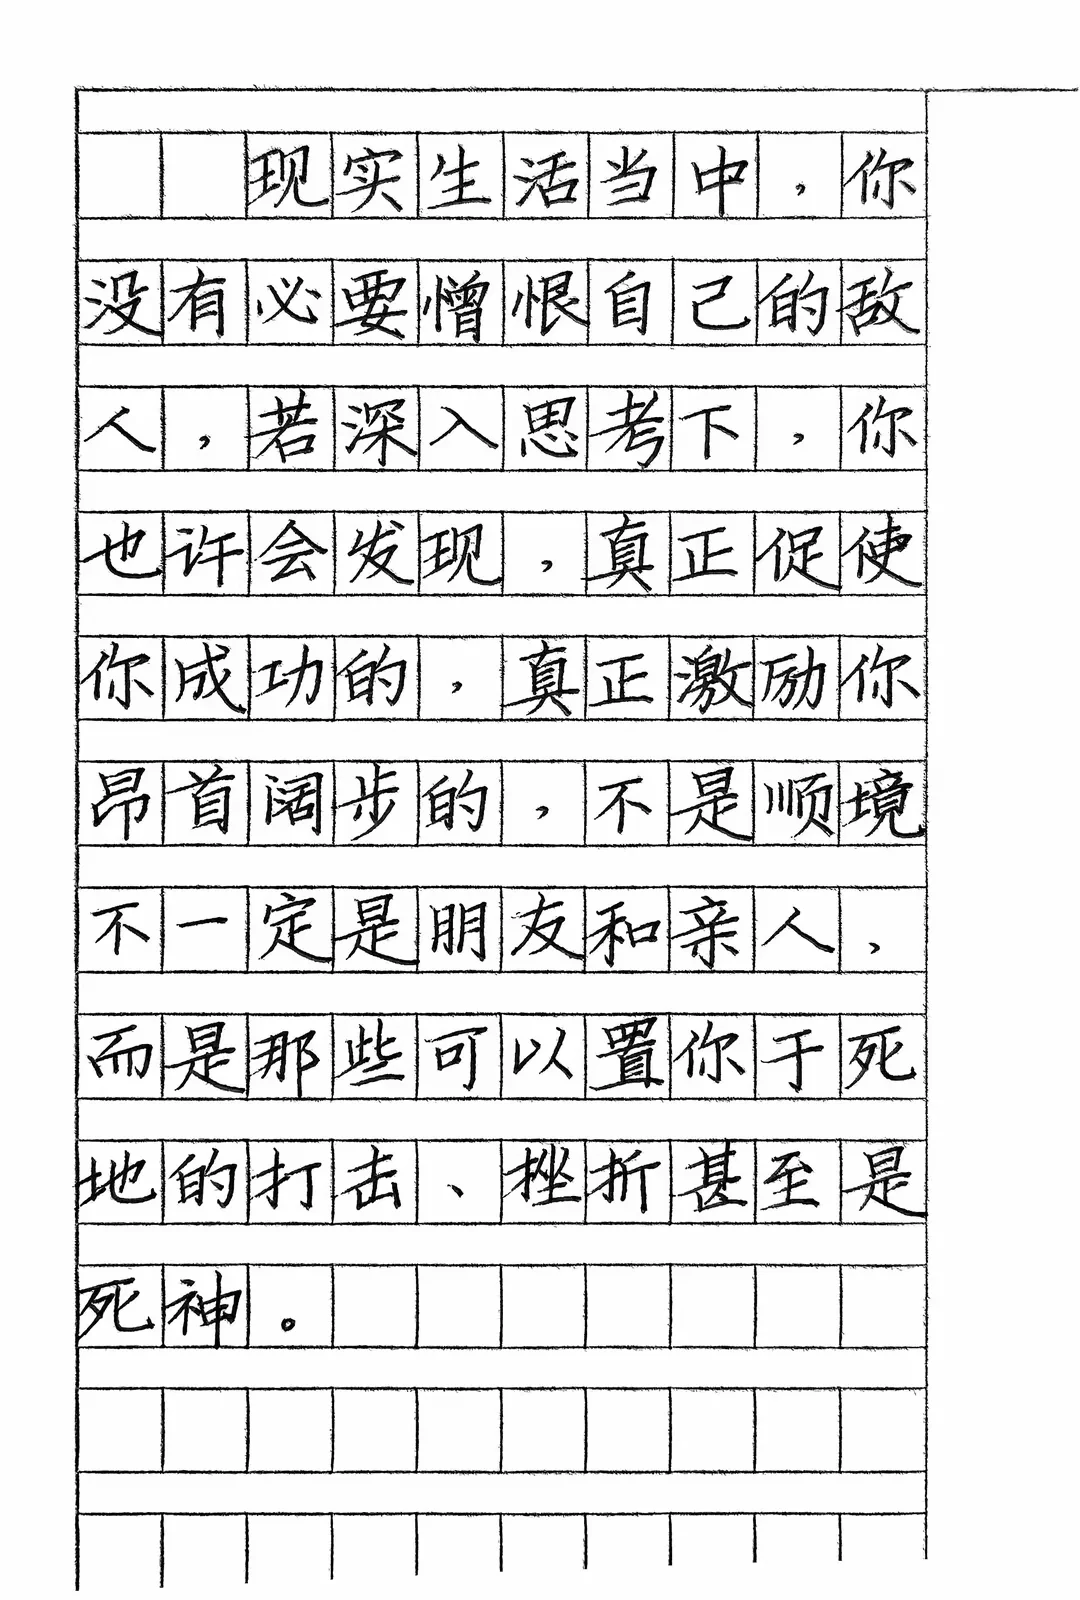 现实生活当中，你
没有必要憎恨自己的敌
人，若深入思考下，你
也许会发现，真正促使
你成功的，真正激励你
昂首阔步的，不是顺境
不一定是朋友和亲人，
而是那些可以置你于死
地的打击、挫折甚至是
死神。